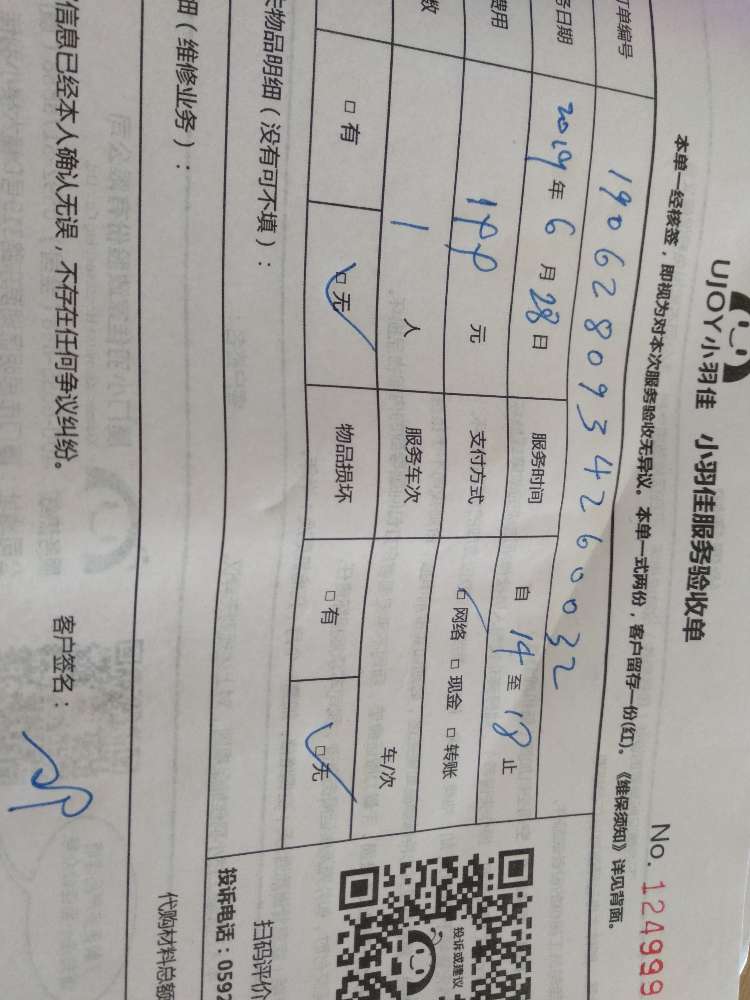 UJOY小羽佳 小羽佳服务验收单
No. 124999
本单一经核签，即视为对本次服务验收无异议。本单一式两份，客户留存一份(红)。《维保须知》详见背面。
订单编号 1906280934260032
务日期 2019年6月28日 服务时间 自14至18止
费用 元 支付方式 □网络 □现金 □转账
数 1人 服务车次 车/次
□有 □无 物品损坏 □有 □无
物品明细（没有可不填）：
投诉或建议
扫码评价
投诉电话：0592
细（维修业务）：
代购材料总额
信息已经本人确认无误，不存在任何争议纠纷。
客户签名：